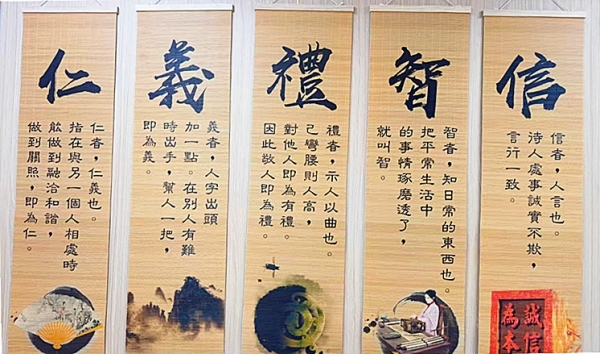 仁
仁者，仁義也。
指在與另一個人相處時
能做到融洽和諧，
做到關照，即為仁。
義
義者，人字出頭
加一點。在別人有難
時出手，幫人一把，
即為義。
禮
禮者，示人以曲也。
己彎腰則人高，
對他人即為有禮。
因此敬人即為禮。
智
智者，知日常的東西也。
把平常生活中
的事情琢磨透了，
就叫智。
信
信者，人言也。
待人處事誠實不欺，
言行一致。
誠信
為本